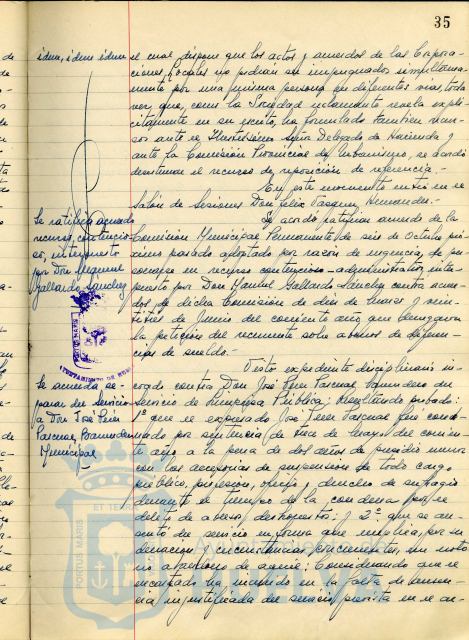 35
idem, idem idem
el cual dispone que los actos y acuerdos de las Corpora-
ciones locales no podrán ser impugnados simultánea-
mente por una misma persona en diferentes vías, toda
vez que, como la Sociedad reclamante revela explí-
citamente en su escrito, ha formulado también recur-
sos ante el Ilustrísimo señor Delegado de Hacienda y
ante la Comisión Provincial de Urbanismo, se acordó
desestimar el recurso de reposición de referencia.-
En este momento entró en el
Salón de Sesiones Don Félix Vázquez Hernández.-
Se ratifica acuerdo
recurso contencio-
so, interpuesto
por Don Manuel
Gallardo Sánchez
Se acordó ratificar acuerdo de la
Comisión Municipal Permanente de seis de Octubre pró-
ximo pasado adoptado por razón de urgencia, de per-
sonarse en recurso contencioso-administrativo inter-
puesto por Don Manuel Gallardo Sánchez contra acuer-
dos de dicha Comisión de diez de Marzo y vein-
titrés de Junio del corriente año que denegaron
la petición del recurrente sobre abonos de diferen-
cias de sueldo.-
AYUNTAMIENTO DE
Se acuerda se-
parar del servicio
a Don José Pérez
Pascual
Municipal
Visto expediente disciplinario in-
coado contra Don José Pérez Pascual, del
servicio de Limpieza Pública; resultando probado:
1º que el expresado José Pérez Pascual fué conde-
nado por sentencia de trece de Mayo del corrien-
te año a la pena de dos años de presidio menor
con las accesorias de suspensión de todo cargo
público, profesión, oficio y derecho de sufragio
durante el tiempo de la condena por el
delito de abusos deshonestos; y 2º que se au-
sentó del servicio en forma que implica, por su
duración y circunstancias concurrentes, un notorio
abandono de aquél; Considerando que el
encartado ha incurrido en la falta de ausen-
cia injustificada del servicio prevista en el ar-
PORTUS MARIS
ET TERRAE